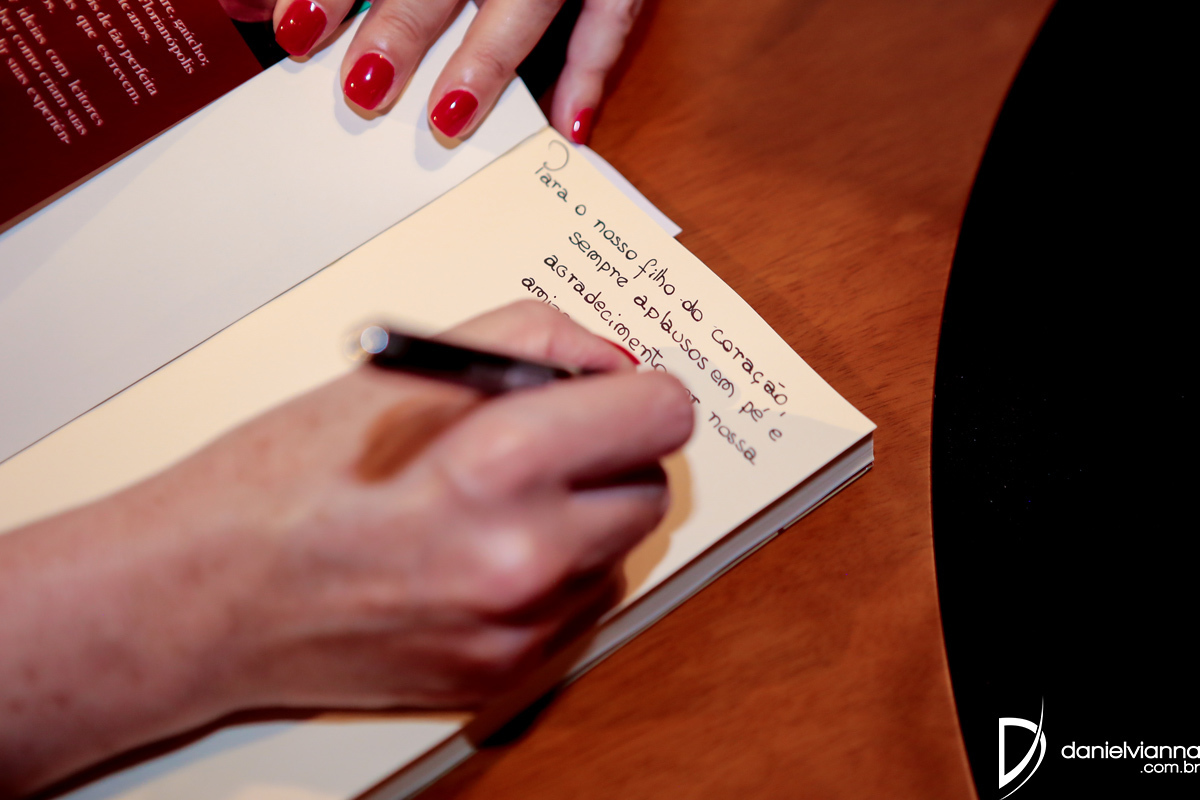 gaúcho,
florianópolis
anos.
de tão perfeita
que escrevem.
ideia com leitores
como criam suas
suas
Para o nosso filho do coração
sempre aplausos em pé e
agradecimento nossa
danielvianna
.com.br